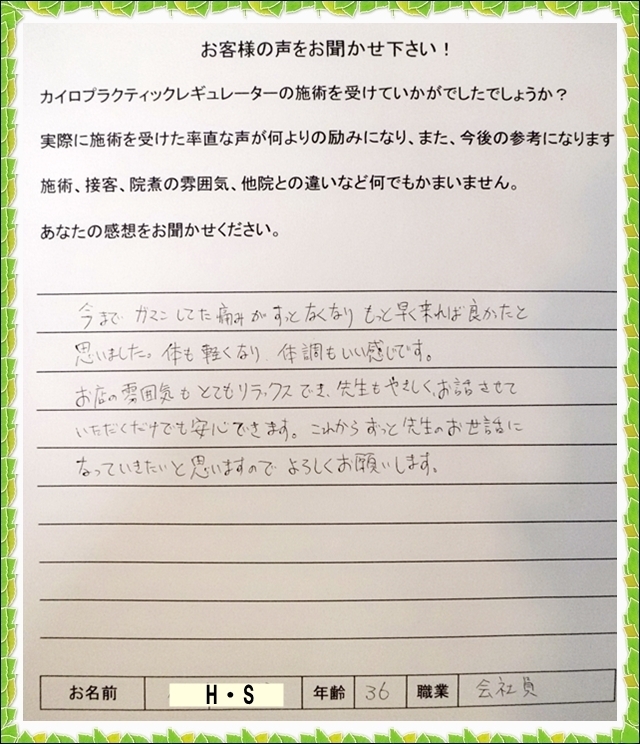 お客様の声をお聞かせ下さい！
カイロプラクティックレギュレーターの施術を受けていかがでしたでしょうか？
実際に施術を受けた率直な声が何よりの励みになり、また、今後の参考になります
施術、接客、院煮の雰囲気、他院との違いなど何でもかまいません。
あなたの感想をお聞かせください。
今まで ガマンしてた痛みが すっとなくなり もっと早く来れば良かったと
思いました。体も軽くなり 体調もいい感じです。
お店の雰囲気も とてもリラックスでき、先生もやさしく、お話させて
いただくだけでも安心できます。これから ずっと先生のお世話に
なっていきたいと思いますので よろしくお願いします。
お名前 H・S 年齢 36 職業 会社員